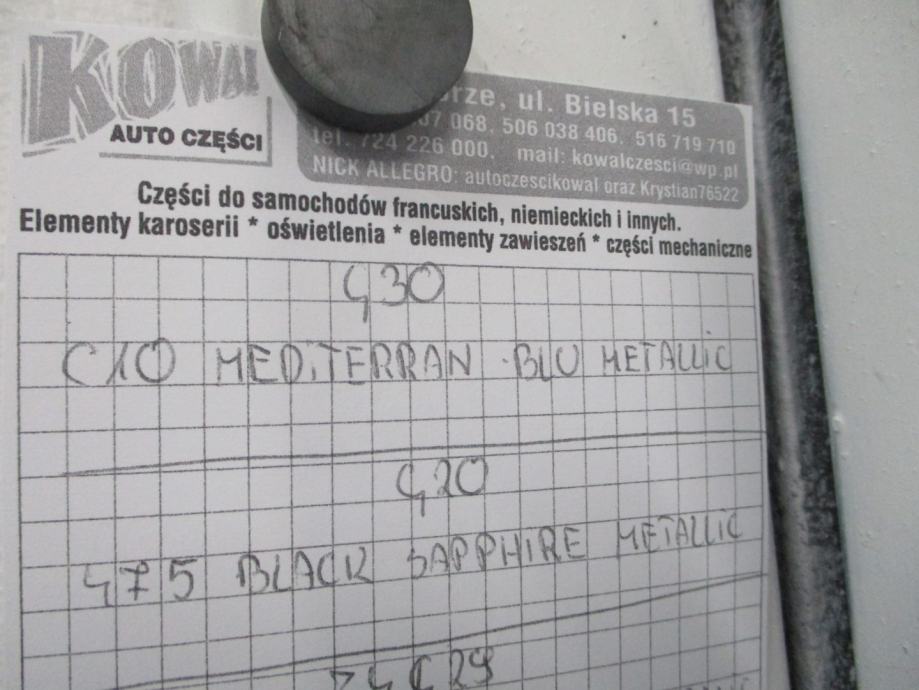 KOWAL
AUTO CZĘŚCI
ul. Bielska 15
07 068, 506 038 406, 516 719 710
tel. 724 226 000, mail: kowalczesci@wp.pl
NICK ALLEGRO: autoczescikowal oraz Krystian76522
Części do samochodów francuskich, niemieckich i innych.
Elementy karoserii * oświetlenia * elementy zawieszeń * części mechaniczne
G30
C10 MEDITERRAN BLU METALLIC
G20
475 BLACK SAPPHIRE METALLIC